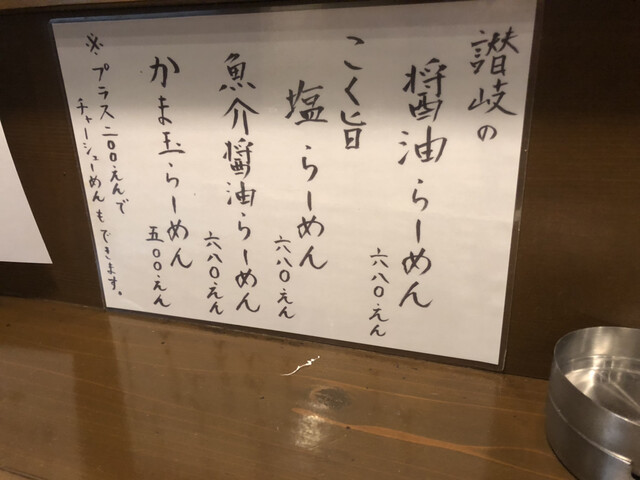 讃岐の
醤油らーめん
六八〇えん
こく旨
塩らーめん
六八〇えん
魚介醤油らーめん
六八〇えん
かま玉らーめん
五〇〇えん
※プラス二〇〇えんで
チャーシューめんもできます。